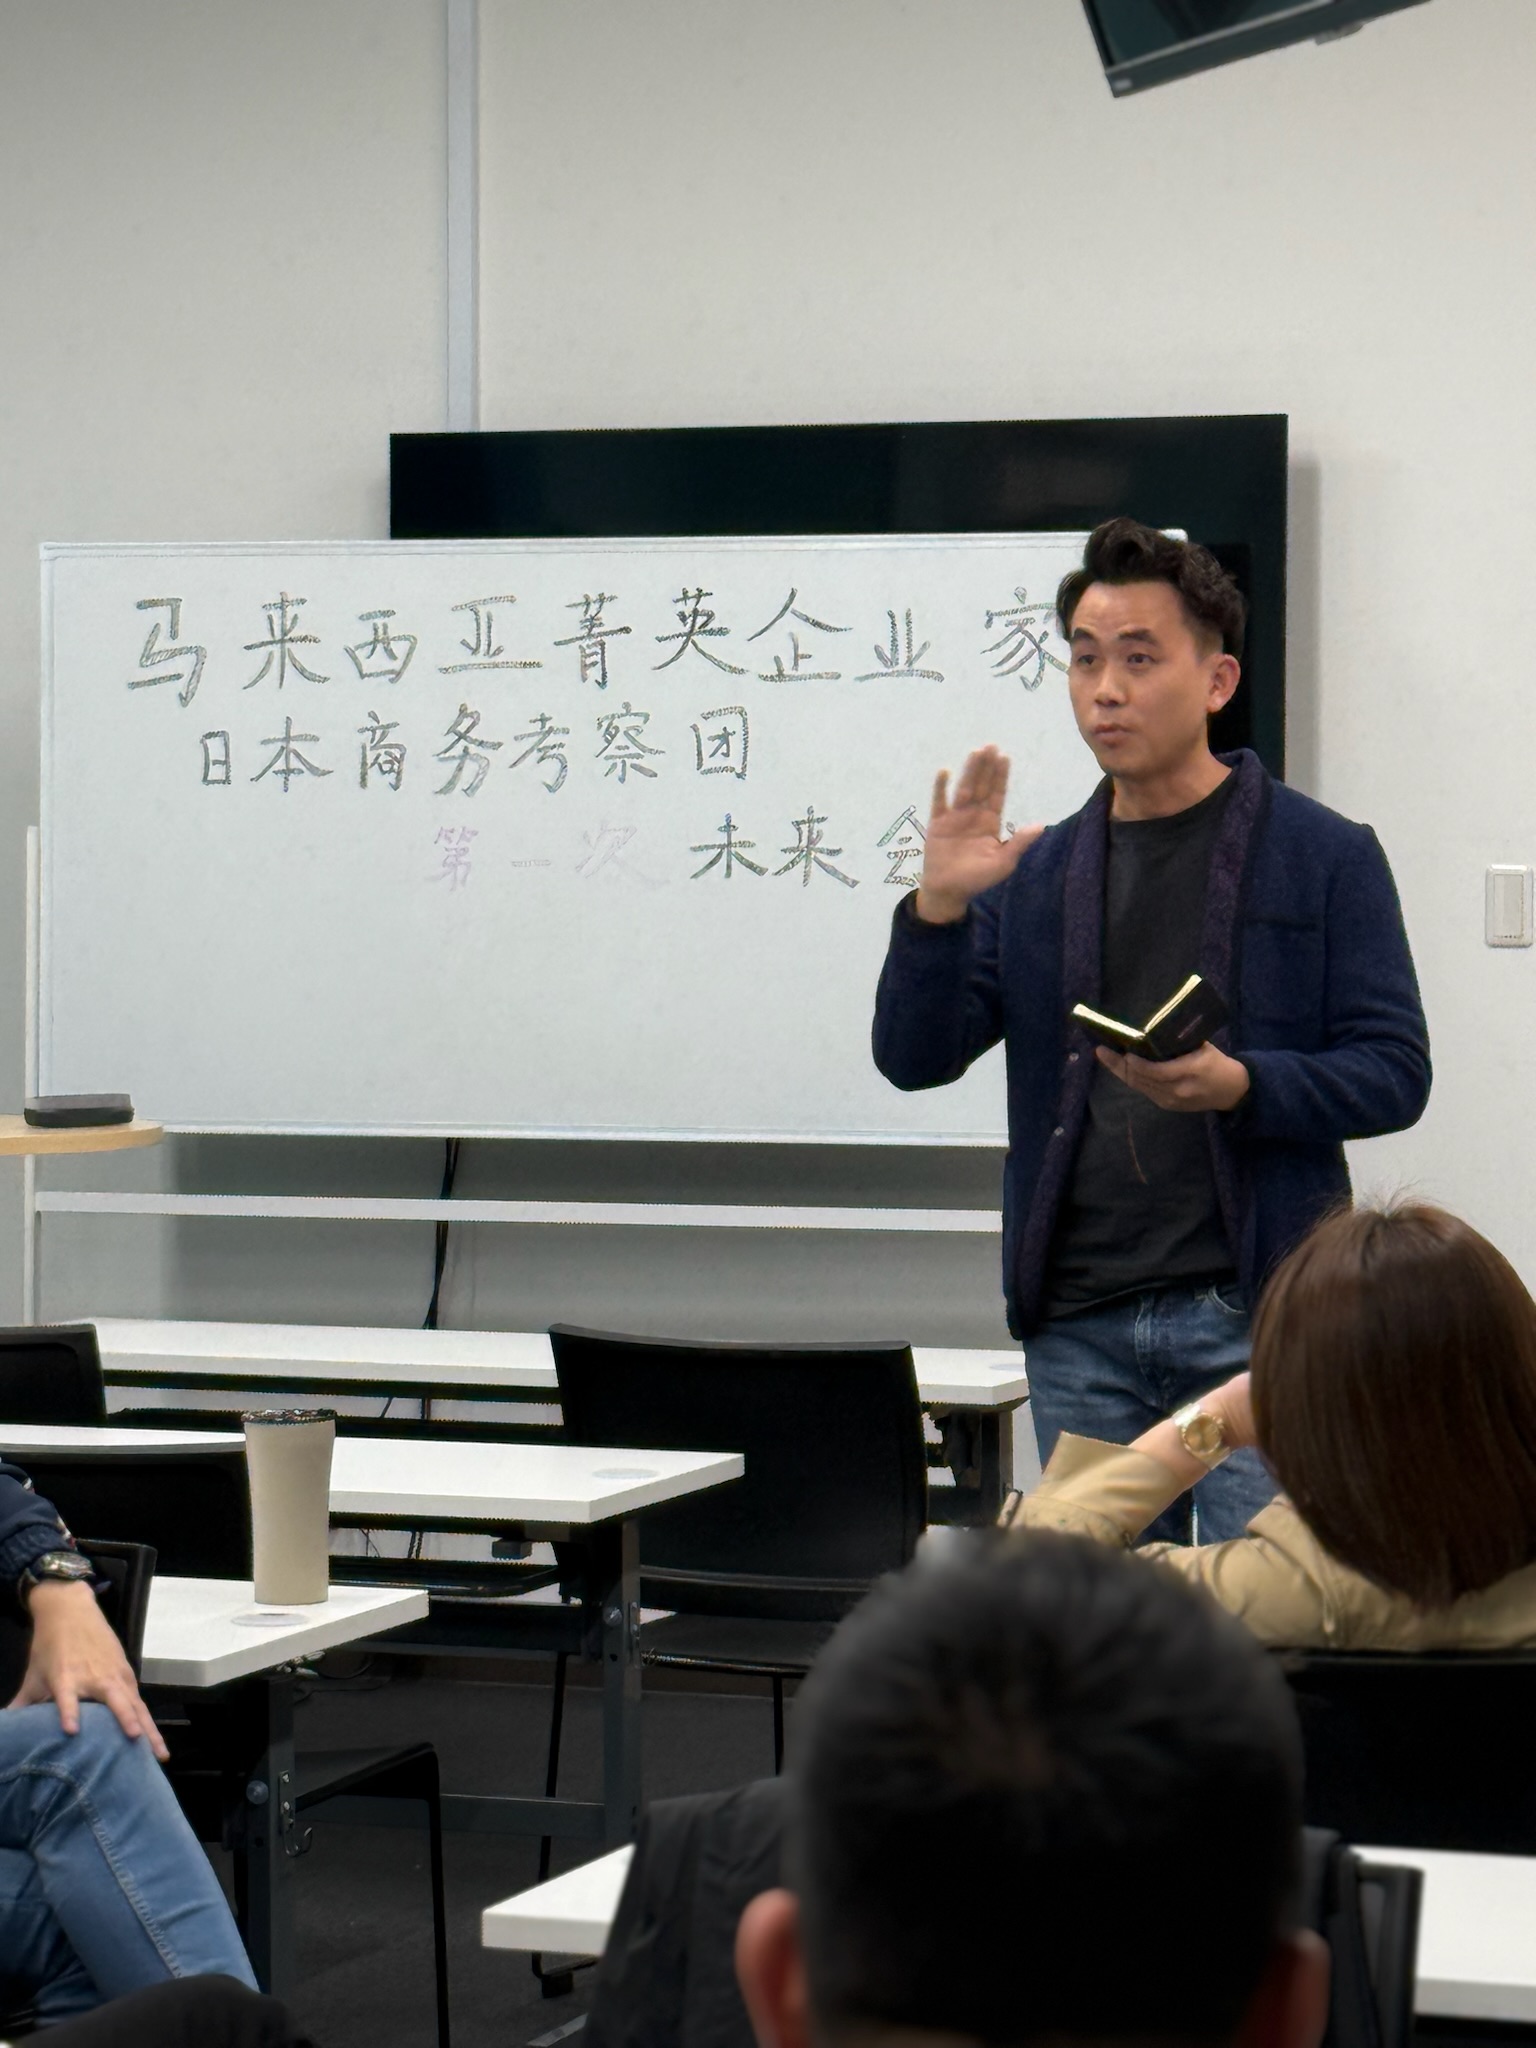 马来西亚菁英企业家
日本商务考察团
第一次 未来会